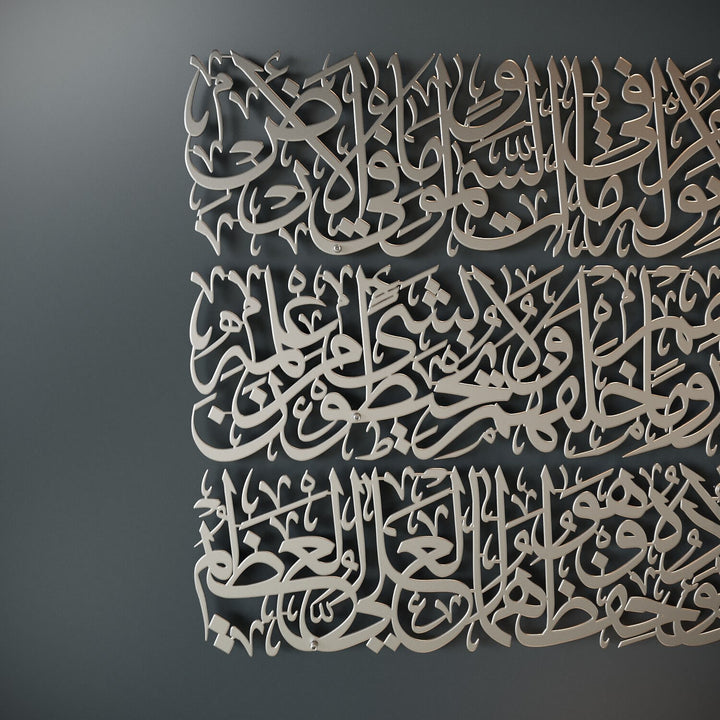 نوم له ما في السموت وما في الارض
وما خلفهم ولا يحيطون بشىء من علمه
حفظهما وهو العلي العظيم